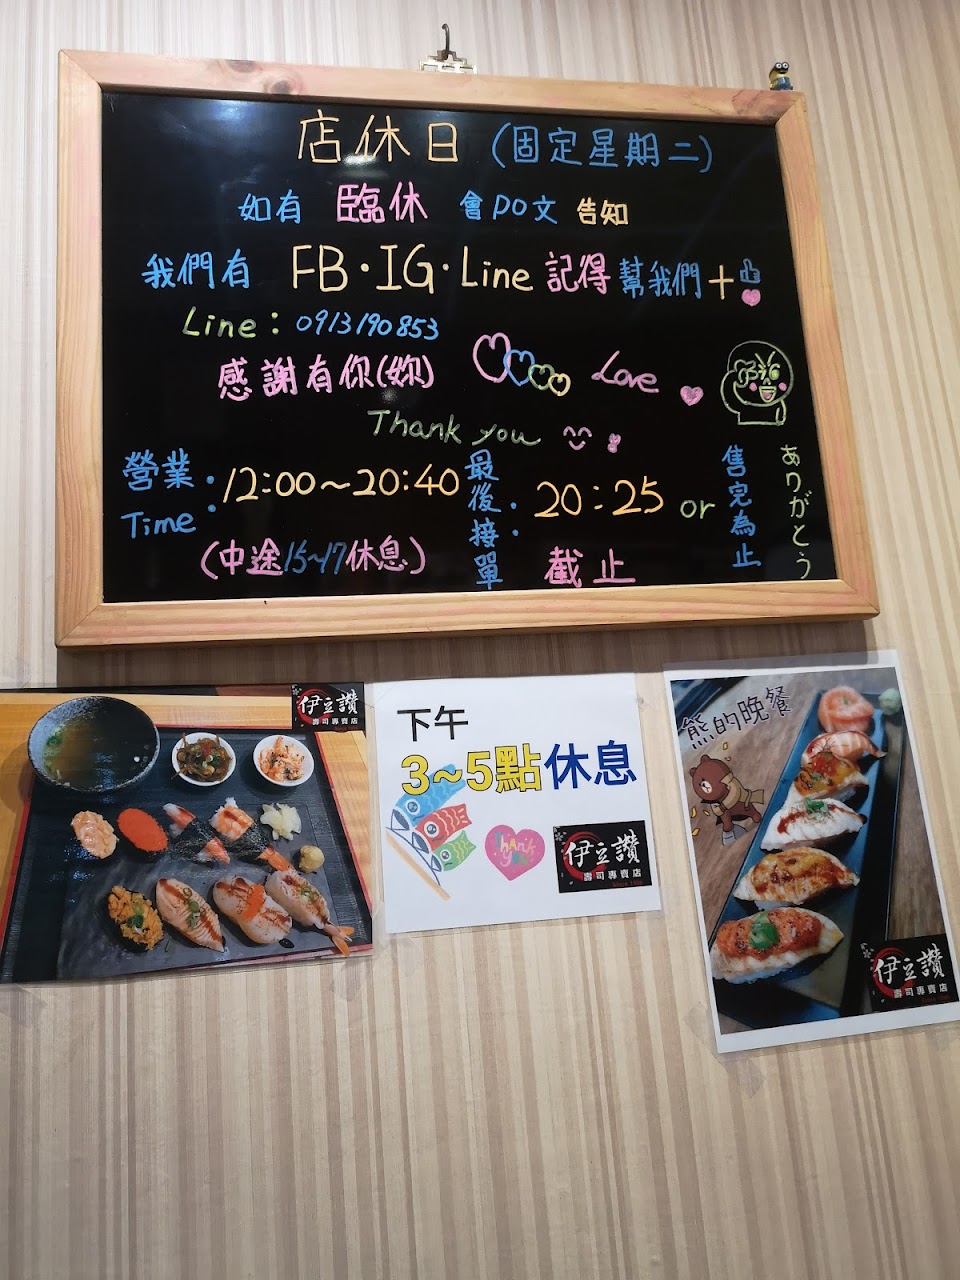 店休日 (固定星期二)
如有 臨休 會PO文 告知
我們有 FB·IG·Line 記得幫我們+
Line：0913190853
感謝有你(妳) Love
Thank you
營業：12:00~20:40
Time
(中途15~17休息)
最後接單：20:25 or
截止
售完為止
ありがとう
伊豆讚
壽司專賣店
下午
3~5點休息
Thank you
伊豆讚
壽司專賣店
熊的晚餐
伊豆讚
壽司專賣店